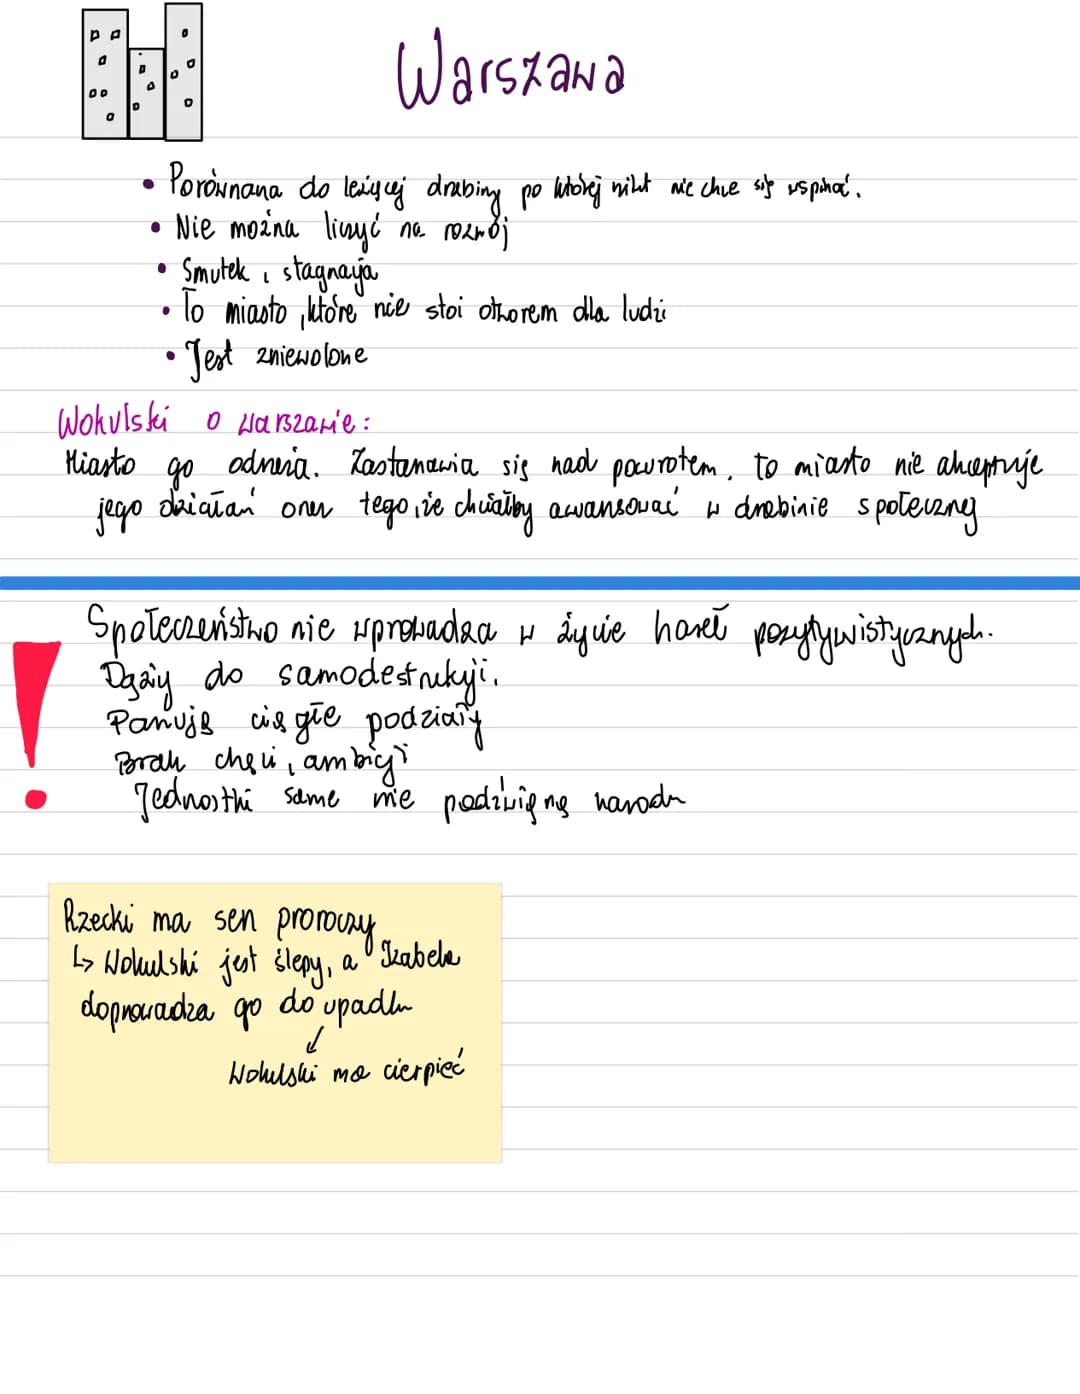 Warszawa
• Porównana do leżącej drabiny po której nikt nie chce się wspinać.
• Nie można liczyć na rozwój
• Smutek i stagnacja
• To miasto, które nie stoi otworem dla ludzi
• Jest zniewolone
Wokulski o Warszawie:
Miasto go odpycha. Zastanawia się nad powrotem. To miasto nie akceptuje
jego działań oraz tego, że chciałby awansować w drabinie społecznej
Społeczeństwo nie wprowadza w życie haseł pozytywistycznych.
Dąży do samodestrukcji.
Panują ciągłe podziały
Brak chęci, ambicji
Jednostki same nie podźwigną narodu
Rzecki ma sen proroczy
↳ Wokulski jest ślepy, a Izabela
doprowadza go do upadku
↙
Wokulski ma cierpieć